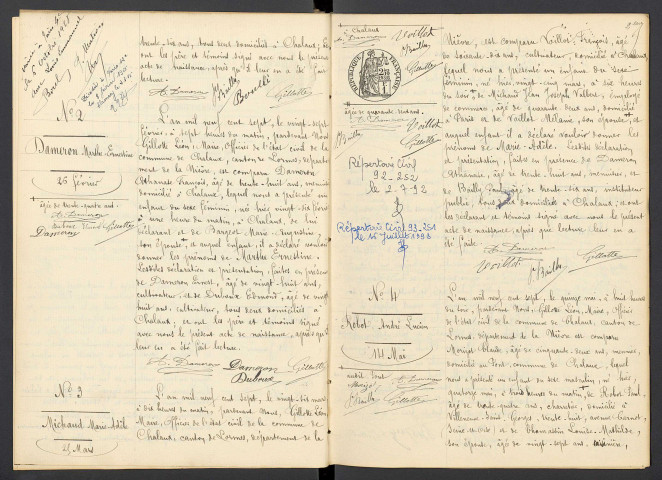 N° 2
Dameron Marthe-Ernestine
26 février
âgée de trente-quatre ans
Dameron
Gillotte
N° 3
Michaud Marie-Adèle
25 Mars
trente-six ans, tous deux domiciliés à Chalaux; 
ont les père et témoins signé avec nous le présent
acte de naissance, après qu'il leur en a été fait
lecture.
L'an mil neuf cent sept, le vingt-sept
février, à sept heures du matin, pardevant Nous,
Gillotte Léon, Maire, Officier de l'état civil de la
commune de Chalaux, canton de Lormes, départe-
ment de la Nièvre, est comparu Dameron
Athanase François, âgé de trente-huit ans, menuisier,
domicilié à Chalaux, lequel nous a présenté un
enfant du sexe féminin, né hier vingt-six février
à une heure du matin, à Chalaux, de lui
déclarant et de Bargeot Marie-Augustine,
son épouse, et auquel enfant, il a déclaré vouloir
donner les prénoms de Marthe Ernestine.
Lesdites déclaration et présentation, faites en présence
de Dameron, Ernest, âgé de vingt-huit ans,
cultivateur, et de Duboux Edmond, âgé de vingt
huit ans, cultivateur, tous deux domiciliés à
Chalaux, et ont les père et témoins signé
avec nous le présent acte de naissance, après qu'il
leur en a été fait lecture.
Dameron
Duboux
Gillotte
L'an mil neuf cent sept, le vingt-six mars
à dix heures du matin, pardevant Nous, Gillotte Léon
Maire, Officier de l'état civil de la commune de
Chalaux, canton de Lormes, département de la
à Chalaux
Dameron
Voillot
Gillotte
RÉPUBLIQUE FRANÇAISE
âgée de quarante-deux ans.
Voillot
Gillotte
Répertoire Civil
92-252
le 2-7-92
Répertoire Civil 93-251
le 15 juillet 1993
N° 4
Robot André Lucien
14 Mai
Gillotte
Nièvre, est comparu Voillot, François, âgé
de soixante-dix ans, cultivateur, domicilié à Chalaux,
lequel nous a présenté un enfant du sexe
féminin, né hier, vingt-cinq mars, à dix heures
du soir, de Michaud Jean Joseph Vallery, employé
de commerce, âgé de quarante deux ans, domicilié
à Paris et de Voillot Mélanie, son épouse, et
auquel enfant il a déclaré vouloir donner les
prénoms de Marie-Adèle. Lesdites déclaration
et présentation, faites en présence de Dameron
Athanase, âgé de trente-huit ans, menuisier, et
de Bailly âgé de trente-six ans, instituteur
public, tous deux domiciliés à Chalaux, et ont
les déclarant et témoins signé avec nous le présent
acte de naissance, après que lecture leur en a
été faite.
Voillot
Bailly
Gillotte
L'an mil neuf cent sept, le quinze mai, à huit heures
du soir, pardevant Nous, Gillotte Léon, Maire, Officier
de l'état civil de la commune de Chalaux, canton de
Lormes, département de la Nièvre est comparu
âgé de cinquante-deux ans,
domicilié au Pont, commune de Chalaux, lequel
nous a présenté un enfant du sexe masculin, né hier
quatorze mai, à trois heures du matin, de Robot Paul,
âgé de trente quatre ans, charretier, domicilié à
Villeneuve-Saint-Georges, trente-huit, avenue Carnot,
Seine-et-Oise et de Thomassin Louise-Mathilde,
son épouse, âgée de vingt-sept ans